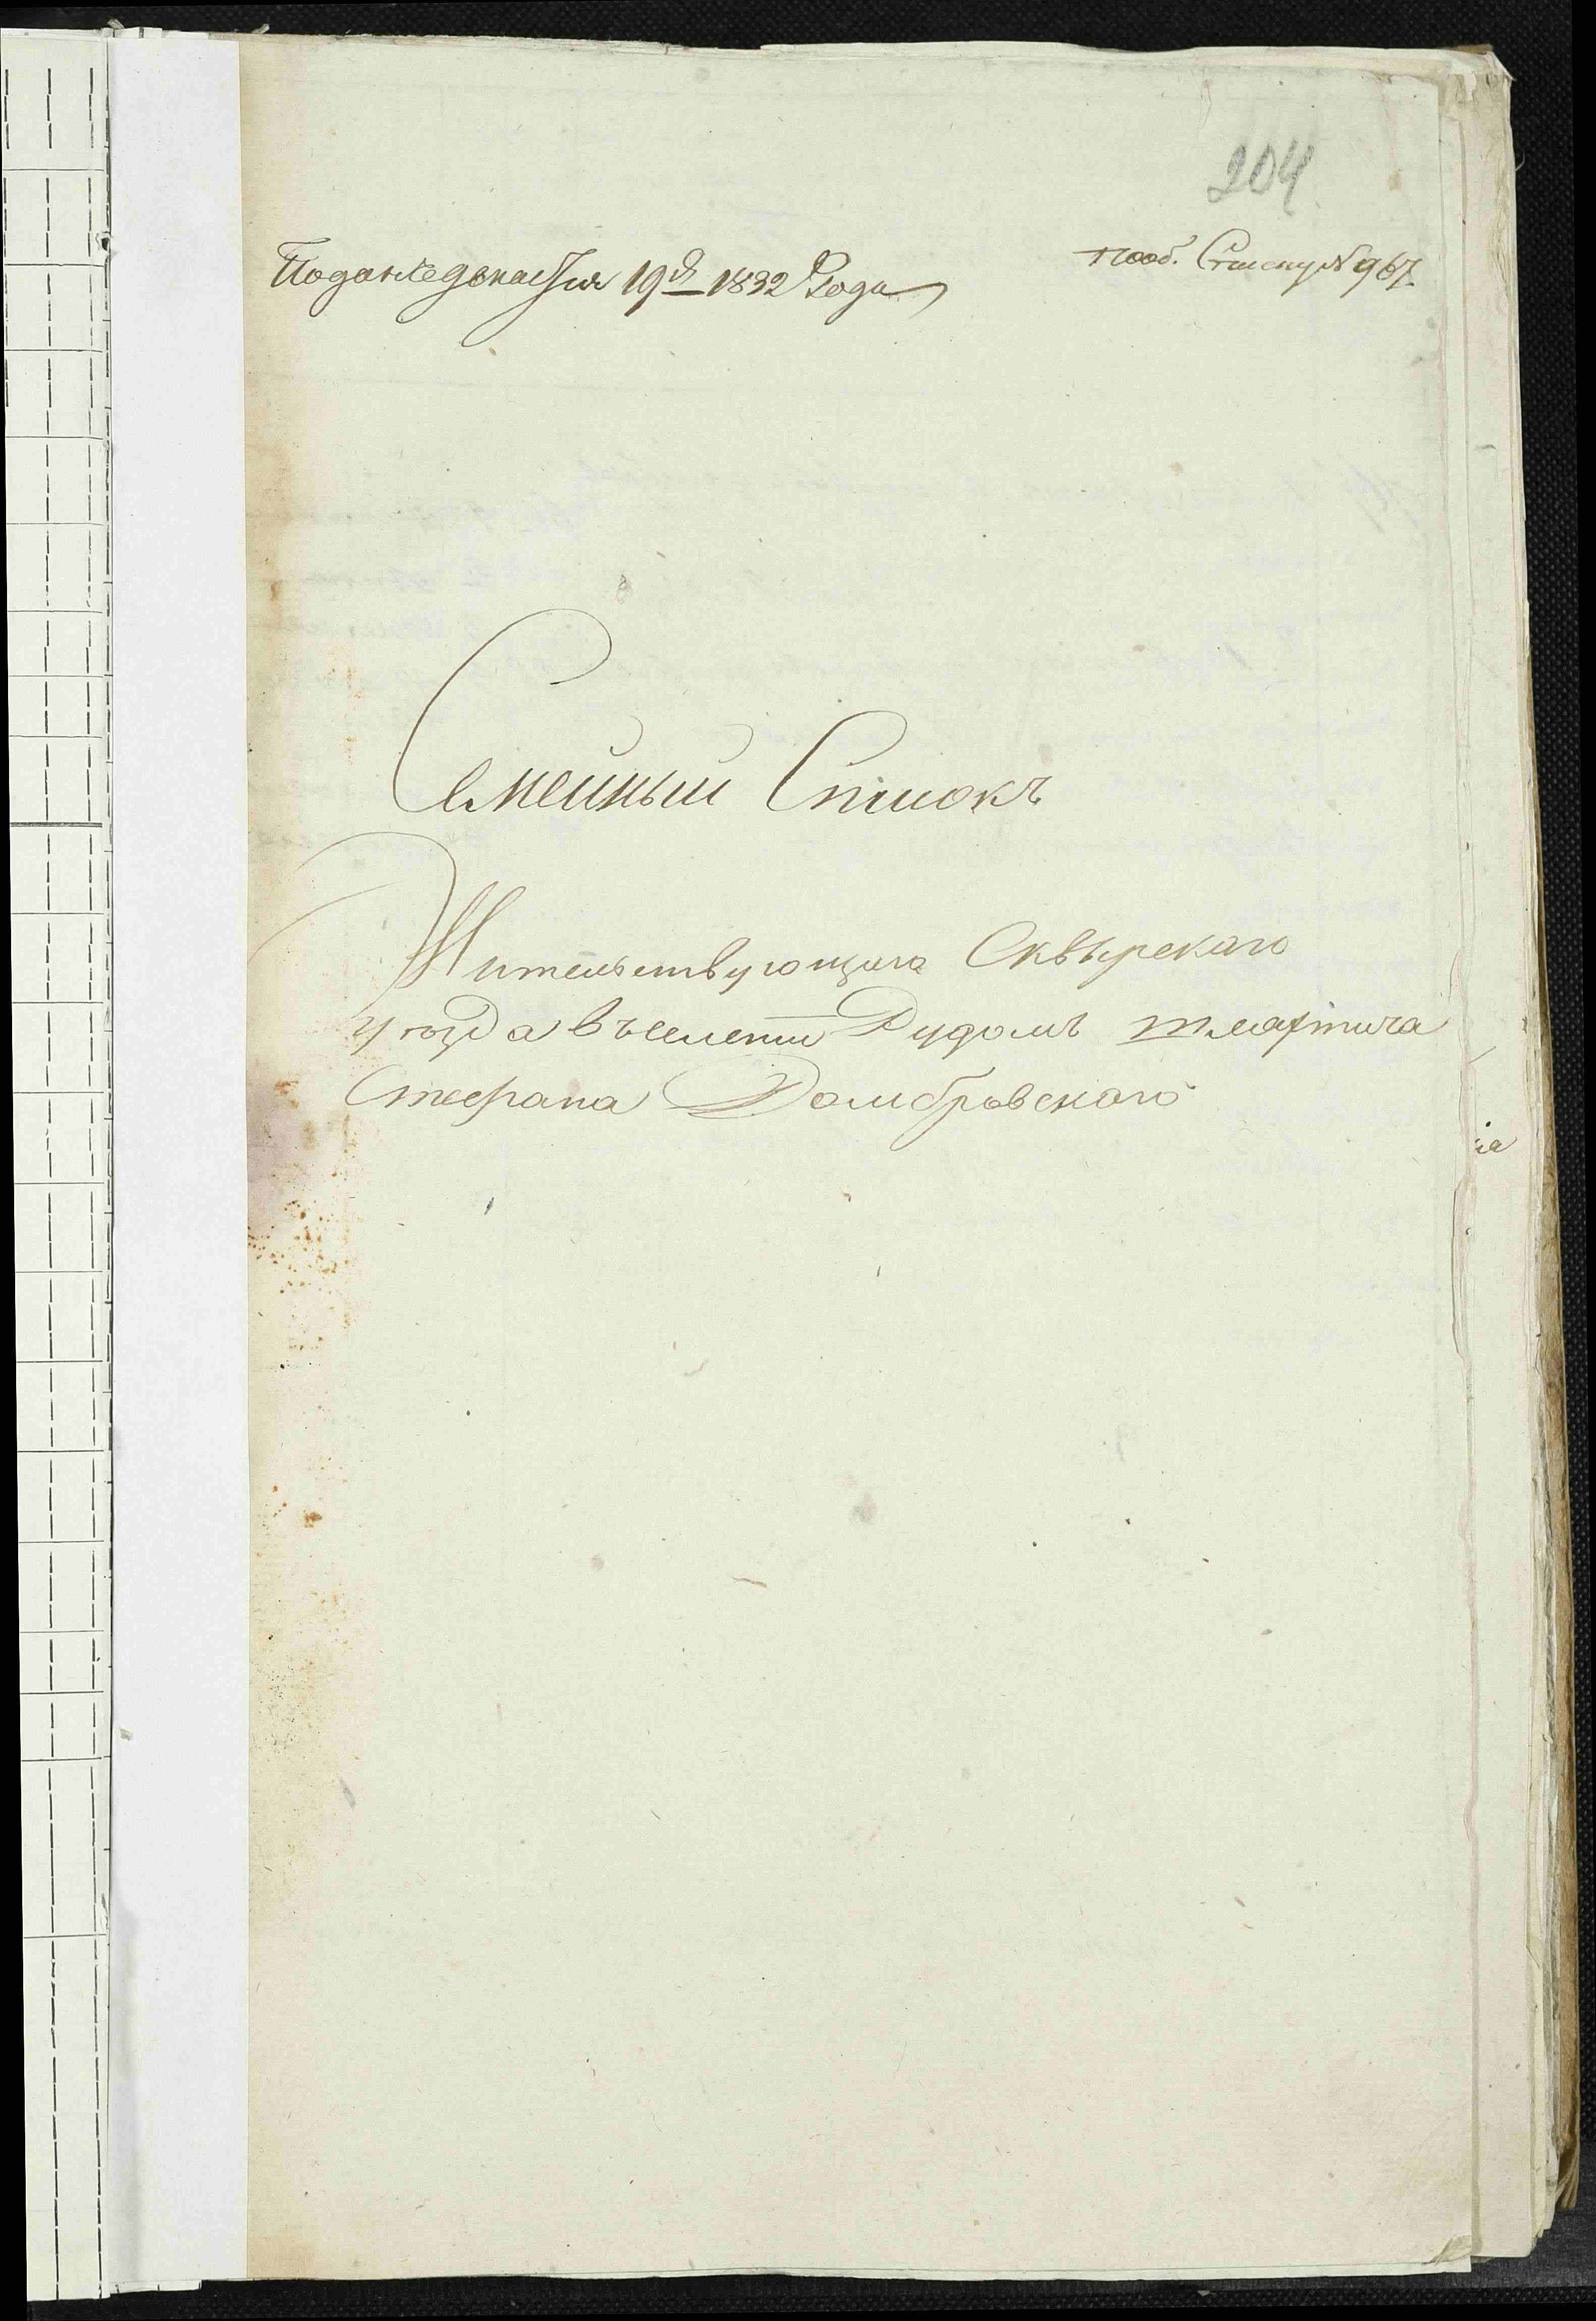 204
Подан декабря 19 д 1832 Года
по об. Списку № 967
Семейный Списокъ
Жительствующаго Сквырскаго
уезда в селении Рудомъ шляхтича
Стефана Домбровскаго